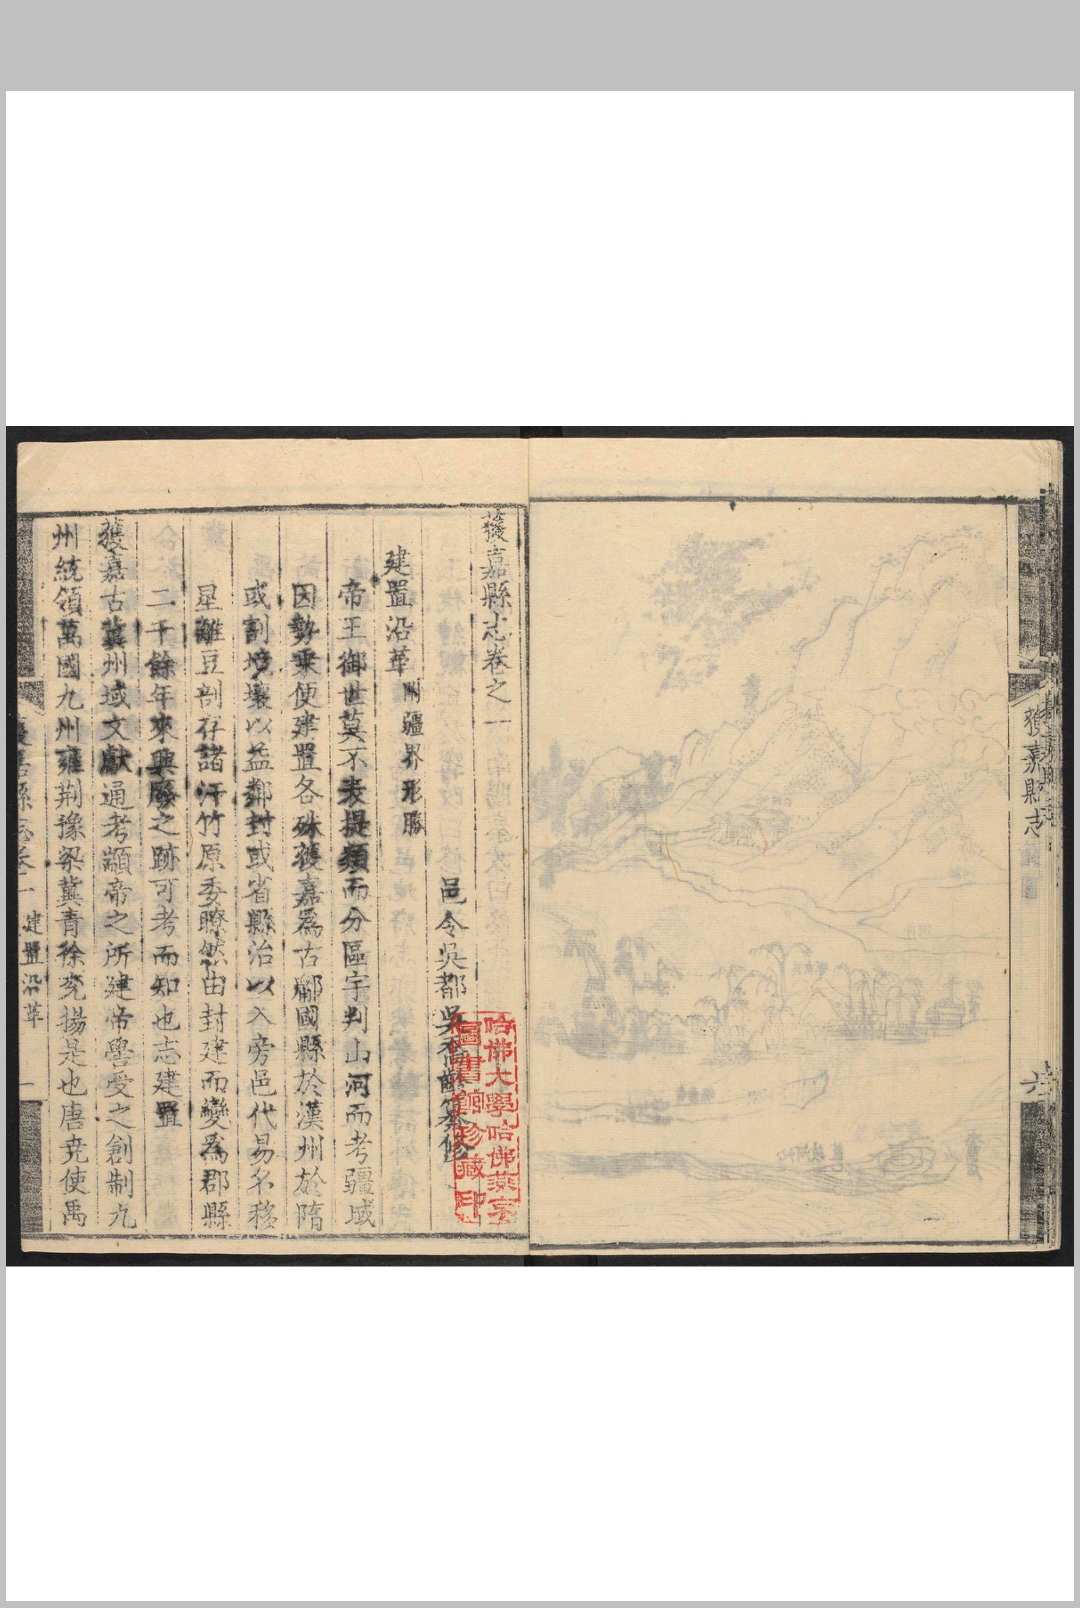 獲嘉縣志
六
獲嘉縣志卷之一
邑令吳都吳喬齡纂修
哈佛大學哈佛燕京
圖書館珍藏印
建置沿革
附疆界形勝
帝王御世莫不表提類而分區宇判山河而考疆域
因勢乘便建置各殊獲嘉爲古鄘國縣於漢州於隋
或割境壤以益鄰封或省縣治以入旁邑代易名移
星離豆剖存諸汗竹原委瞭然由封建而變爲郡縣
二千餘年來興廢之跡可考而知也志建置
獲嘉古冀州域文獻通考顓帝之所建帝嚳受之創制九
州統領萬國九州雍荆豫梁冀青徐兗揚是也唐堯使禹
建置沿革
一